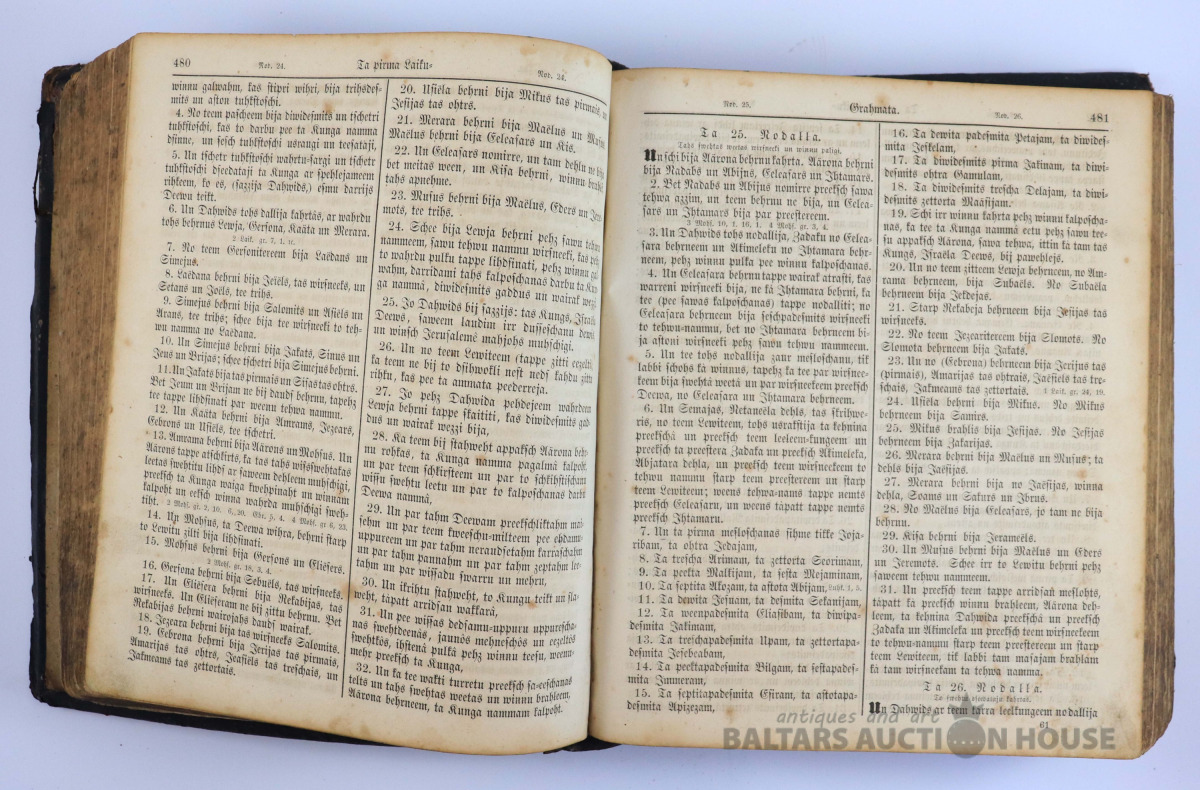 480
Nod. 24.
Ta pirma Laiku-
Nod. 24.
winnu galwahm, kas stipri wihri, bija trihsdes-
mits un astoņ tuhkstoschi.
4. No teem pascheem bija diwidesmits un tschetri
tuhkstoschi, kas to darbu pee ta Kunga namma
dsinne, un seschi tuhkstoschi usrangi un teesataji,
5. Un tschetr tuhkstoschi wahrtu-sargi un tschetr
tuhkstoschi dseedataji ta Kunga ar spehlejameem
rihkeem, ko es, (sazzija Dahwids,) esmu darrijs
Deewu teikt.
6. Un Dahwids tohs dallija kahrtās, ar wahrdu
tohs behrnus Lewja, Gersona, Kaäta un Merara.
2 Laik. gr. 7, 1. tc.
7. No teem Gersonitereem bija Laëdans un
Simejus.
8. Laëdana behrni bija Jeïëls, tas wirsneeks, un
Setans un Joëls, tee trihs.
9. Simejus behrni bija Salomits un Asiëls un
Arans, tee trihs; schee bija tee wirsneeki to teh-
wu namma no Laëdana.
10. Un Simejus behrni bija Jakats, Sinus un
Jeus un Brijas; schee tschetri bija Simejus behrni.
11. Un Jakats bija tas pirmais un Sisas tas ohtrs.
Bet Jeum un Brijam ne bij daudf behrnu, tapehz
tee tappe lihdsinati par weenu tehwa nammu.
12. Un Kaäta behrni bija Amrams, Jezears,
Eebrons un Usiëls, tee tschetri.
13. Amrama behrni bija Aärons un Mohsus. Un
Aärons tappe atschkirts, ka tas tahs wissswehtakas
leetas swehtitu lihds ar saweem dehleem muhschigi,
preeksch ta Kunga waiga kwehpinaht un winnam
kalpoht un eeksch winna wahrda muhschigi sweh-
tiht.
14. Un Mohsus, ta Deewa wihra, behrni starp
to Lewitu zilti bija lihdsinati.
15. Mohsus behrni bija Gersons un Eliësers.
2 Mohs. gr. 18, 3. 4.
16. Gersona behrni bija Sebuëls, tas wirsneeks.
17. Un Eliësera behrni bija Rekabijas, tas
wirsneeks. Un Eliëseram ne bij zittu behrnu. Bet
Rekabijas behrni wairojahs daudf wairak.
18. Jezeara behrni bija tas wirsneeks Salomits.
19. Eebrona behrni bija Jerijas tas pirmais,
Amarijas tas ohtrs, Jeasiëls tas treschais, un
Jakmeams tas zettortais.
20. Usiëla behrni bija Mikus tas pirmais, un
Jesijas tas ohtrs.
21. Merara behrni bija Maëlus un Musus.
Maëlus behrni bija Eeleasars un Kis.
22. Un Eeleasars nomirre, un tam dehlu ne bija
bet meitas ween, un Kisa behrni, winnu brahli
tahs apnehme.
23. Musus behrni bija Maëlus, Eders un Jere-
mots, tee trihs.
24. Schee bija Lewja behrni pehz sawu tehwu
nammeem, sawu tehwu nammu wirsneeki, kas pehz
to wahrdu pulku tappe lihdsinati, pehz winnu gal-
wahm, darridami tahs kalposchanas darbu ta Kun-
ga nammā, diwidesmits gaddus un wairak wezzi.
25. Jo Dahwids bij sazzijs: tas Kungs, Israëla
Deews, saweem laudim irr dusseschanu dewis
un winsch Jerusalemē mahjohs muhschigi.
26. Un no teem Lewiteem (tappe zitti eezelti,)
ka teem ne bij to dsihwokli nest neds kahdu zittu
rihku, kas pee ta ammata peederreja.
27. Jo pehz Dahwida pehdejeem wahrdeem
Lewja behrni tappe skaititi, kas diwidesmits gad-
dus un wairak wezzi bija,
28. Ka teem bij stahweht appaksch Aärona behr-
nu rohkas, ta Kunga namma pagalmā kalpoht,
un par teem schkihrsteem un par to schkihstischanu
wissu swehtu leetu un par to kalposchanas darbu
Deewa nammā,
29. Un par tahm Deewam preekschliktahm mai-
sehm un par teem kweeschu-milteem pee ehdamu-
uppureem un par tahm neraudsetahm karraschahm
un par tahm pannahm un par tahm zeptahm lee-
tahm un par wissadu swarru un mehru,
30. Un ikrihtu stahweht, to Kungu teikt un sla-
weht, tāpatt arridsan wakkarā,
31. Un pee wissas dedsamu-uppuru uppurescha-
nas swehtdeenās, jaunōs mehneschōs un eezeltōs
swehtkōs, ihstenā pulkā pehz winnu teesu, weenu-
mehr preeksch ta Kunga,
32. Un ka tee wakti turretu preeksch sa-eeschanas
telts un tahs swehtas weetas un winnu brahleem,
Aärona behrneem, ta Kunga nammam kalpoht.
Nod. 25.
Grahmata.
Nod. 26.
481
Ta 25. Nodalla.
Tahs swehtas weetas wirsneeki un winnu paligi.
Un schi bija Aärona behrnu kahrta. Aärona behrni
bija Nadabs un Abijus, Eeleasars un Ihtamars.
2. Bet Nadabs un Abijus nomirre preeksch sawa
tehwa azzim, un teem behrnu ne bija, un Eelea-
sars un Ihtamars bija par preestereem.
3 Mohs. 10, 1. 16, 1. 4 Mohs. gr. 3, 4.
3. Un Dahwids tohs nodallija, Zadaku no Eelea-
sara behrneem un Akimeleku no Ihtamara behr-
neem, pehz winnu pulka pee winnu kalposchanas.
4. Un Eeleasara behrnu tappe wairak atrasti, kas
warreni wirsneeki bija, ne kā Ihtamara behrni, ka
tee (pee sawas kalposchanas) tappe nodalliti; no
Eeleasara behrneem bija seschpadesmits wirsneeki
to tehwu-nammu, bet no Ihtamara behrneem bi-
ja astoņi wirsneeki pehz sawu tehwu nammeem.
5. Un tee tohs nodallija zaur mesloschanu, tik
labbi schohs kā winnus, tapehz ka tee par wirsnee-
keem bija swehtā weetā un par wirsneekeem preeksch
Deewa, no Eeleasara un Ihtamara behrneem.
6. Un Semajas, Netaneëla dehls, tas skrihwe-
ris, no teem Lewiteem, tohs usrakstija ta kehnina
preekschā un preeksch teem leeleem-kungeem un
preeksch ta preestera Zadaka un preeksch Akimeleka,
Abjatara dehla, un preeksch teem wirsneekeem to
tehwu nammu starp teem preestereem un starp
teem Lewiteem; weens tehwa-nams tappe nemts
preeksch Eeleasaru, un weens tāpatt tappe nemts
preeksch Ihtamaru.
7. Un ta pirma mesloschanas sihme tikke Joja-
ribam, ta ohtra Jedajam,
8. Ta trescha Arimam, ta zettorta Seorimam,
9. Ta peekta Malkijam, ta sesta Mejaminam,
10. Ta septita Akozam, ta astota Abijam, Luhk. 1, 5.
11. Ta dewita Jesuam, ta desmita Sekanijam,
12. Ta weenpadesmita Eliasibam, ta diwipa-
desmita Jakimam,
13. Ta treschapadesmita Upam, ta zettortapa-
desmita Jesebeabam,
14. Ta peektapadesmita Bilgam, ta sestapades-
mita Immeram,
15. Ta septitapadesmita Esiram, ta astotapa-
desmita Apizezam,
16. Ta dewita padesmita Petajam, ta diwides-
mita Jeskelam,
17. Ta diwidesmits pirma Jakinam, ta diwi-
desmits ohtra Gamulam,
18. Ta diwidesmits trescha Delajam, ta diwi-
desmits zettorta Maäsijam.
19. Schi irr winnu kahrta pehz winnu kalposcha-
nas, ka tee ta Kunga nammā eetu pehz sawu tee-
su appaksch Aärona, sawa tehwa, ittin kā tam tas
Kungs, Israëla Deews, bij pawehlejs.
20. Un no teem zitteem Lewja behrneem, no Am-
rama behrneem, bija Subaëls. No Subaëla
behrneem bija Jekdejas.
21. Starp Rekabeja behrneem bija Jesijas tas
wirsneeks.
22. No teem Jezearitereem bija Slomots. No
Slomota behrneem bija Jakats.
23. Un no (Eebrona) behrneem bija Jerijus tas
(pirmais), Amarijas tas ohtrais, Jaësiels tas tre-
schais, Jakmeams tas zettortais. 1 Laik. gr. 24, 19.
24. Usiëla behrni bija Mikus. No Mikus
behrneem bija Samirs.
25. Mikus brahlis bija Jesijas. No Jesijas
behrneem bija Zakarijas.
26. Merara behrni bija Maëlus un Musus; ta
dehls bija Jaësijas.
27. Merara behrni bija no Jaësijas, winna
dehla, Soams un Sakurs un Ibrus.
28. No Maëlus bija Eeleasars, jo tam ne bija
behrnu.
29. Kisa behrni bija Jerameëls.
30. Un Musus behrni bija Maëlus un Eders
un Jeremots. Schee irr to Lewitu behrni pehz
saweem tehwu nammeem.
31. Un preeksch teem tappe arridsan meslohts,
tāpatt kā preeksch winnu brahleem, Aärona beh-
leem, ta kehnina Dahwida preekschā un preeksch
Zadaka un Akimeleka un preeksch teem wirsneekeem
to tehwu-nammu starp teem preestereem un starp
teem Lewiteem, tik labbi tam masajam brahlam
kā tam wirsneekam ta tehwa namma.
Ta 26. Nodalla.
Un Dahwids ar teem karra leelkungeem nodallija
61
antiques and art
BALTARS AUCTION HOUSE